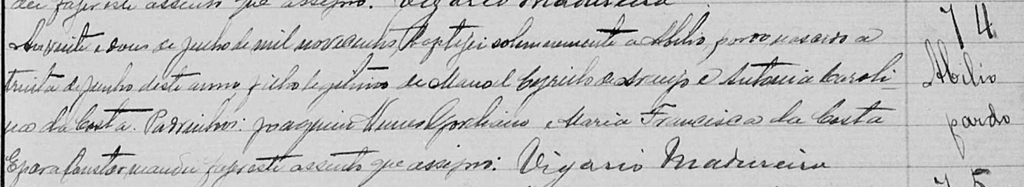 dei fazer este assento que assigno. Vigario Madureira
Aos vinte e dous de Junho de mil novecentos baptizei solemnemente a Abilio, pardo nascido a
trinta de Junho deste anno filho legitimo de Manoel Cyrillo de Araujo e Antonia Caroli-
na da Costa. Padrinhos: Joaquim Nunes e Maria Francisca da Costa
E para constar mandei fazer este assento que assigno: Vigario Madureira
74
Abilio
pardo
75